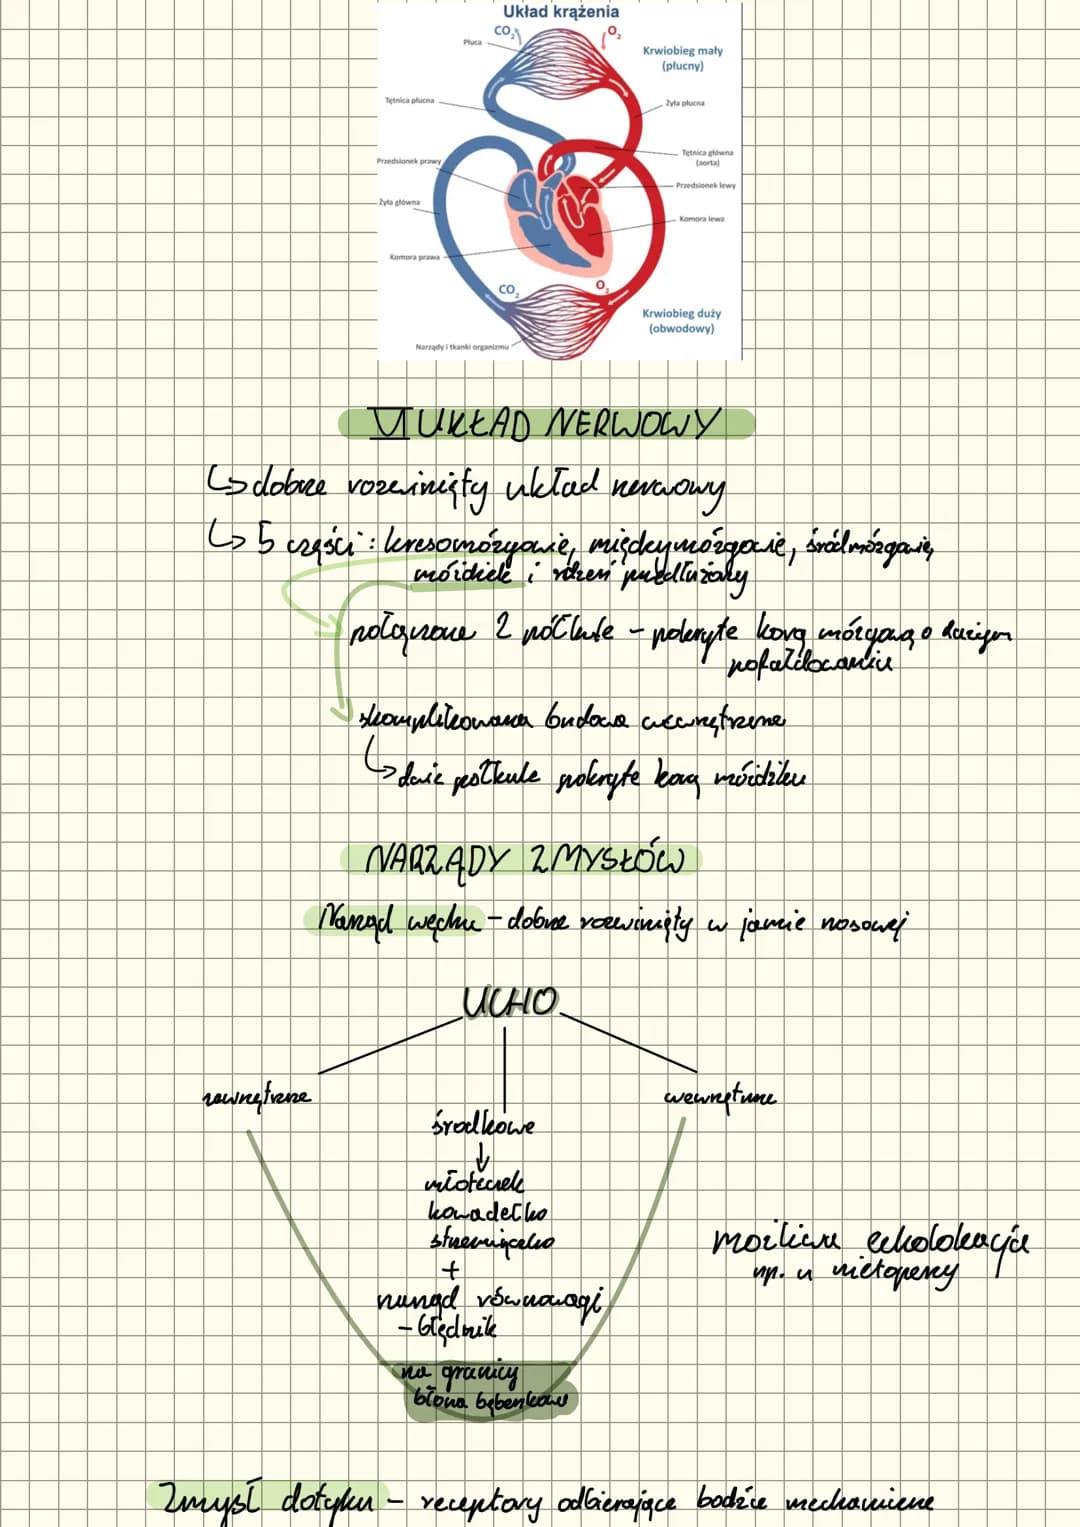 Układ krążenia
CO₂
O₂
Płuca
Krwiobieg mały
(płucny)
Tętnica płucna
Żyła płucna
Tętnica główna
(aorta)
Przedsionek prawy
Przedsionek lewy
Żyła główna
Komora lewa
Komora prawa
CO₂
O₂
Krwiobieg duży
(obwodowy)
Narządy i tkanki organizmu
VI UKŁAD NERWOWY
↳ dobrze rozwinięty układ nerwowy
↳ 5 części: kresomózgowie, międzymózgowie, śródmózgowie,
móżdżek i rdzeń przedłużony
połączone 2 półkule - pokryte korą mózgową o dużym
pofałdowaniu
skomplikowana budowa wewnętrzna
↳ dwie półkule pokryte korą móżdżku
NARZĄDY ZMYSŁÓW
Narząd węchu - dobrze rozwinięty w jamie nosowej
UCHO
zewnętrzne
wewnętrzne
środkowe
↓
młoteczek
kowadełko
strzemiączko
możliwa echolokacja
np. u nietoperzy
+
narząd równowagi
- błędnik
na granicy
błona bębenkowa
Zmysł dotyku - receptory odbierające bodźce mechaniczne